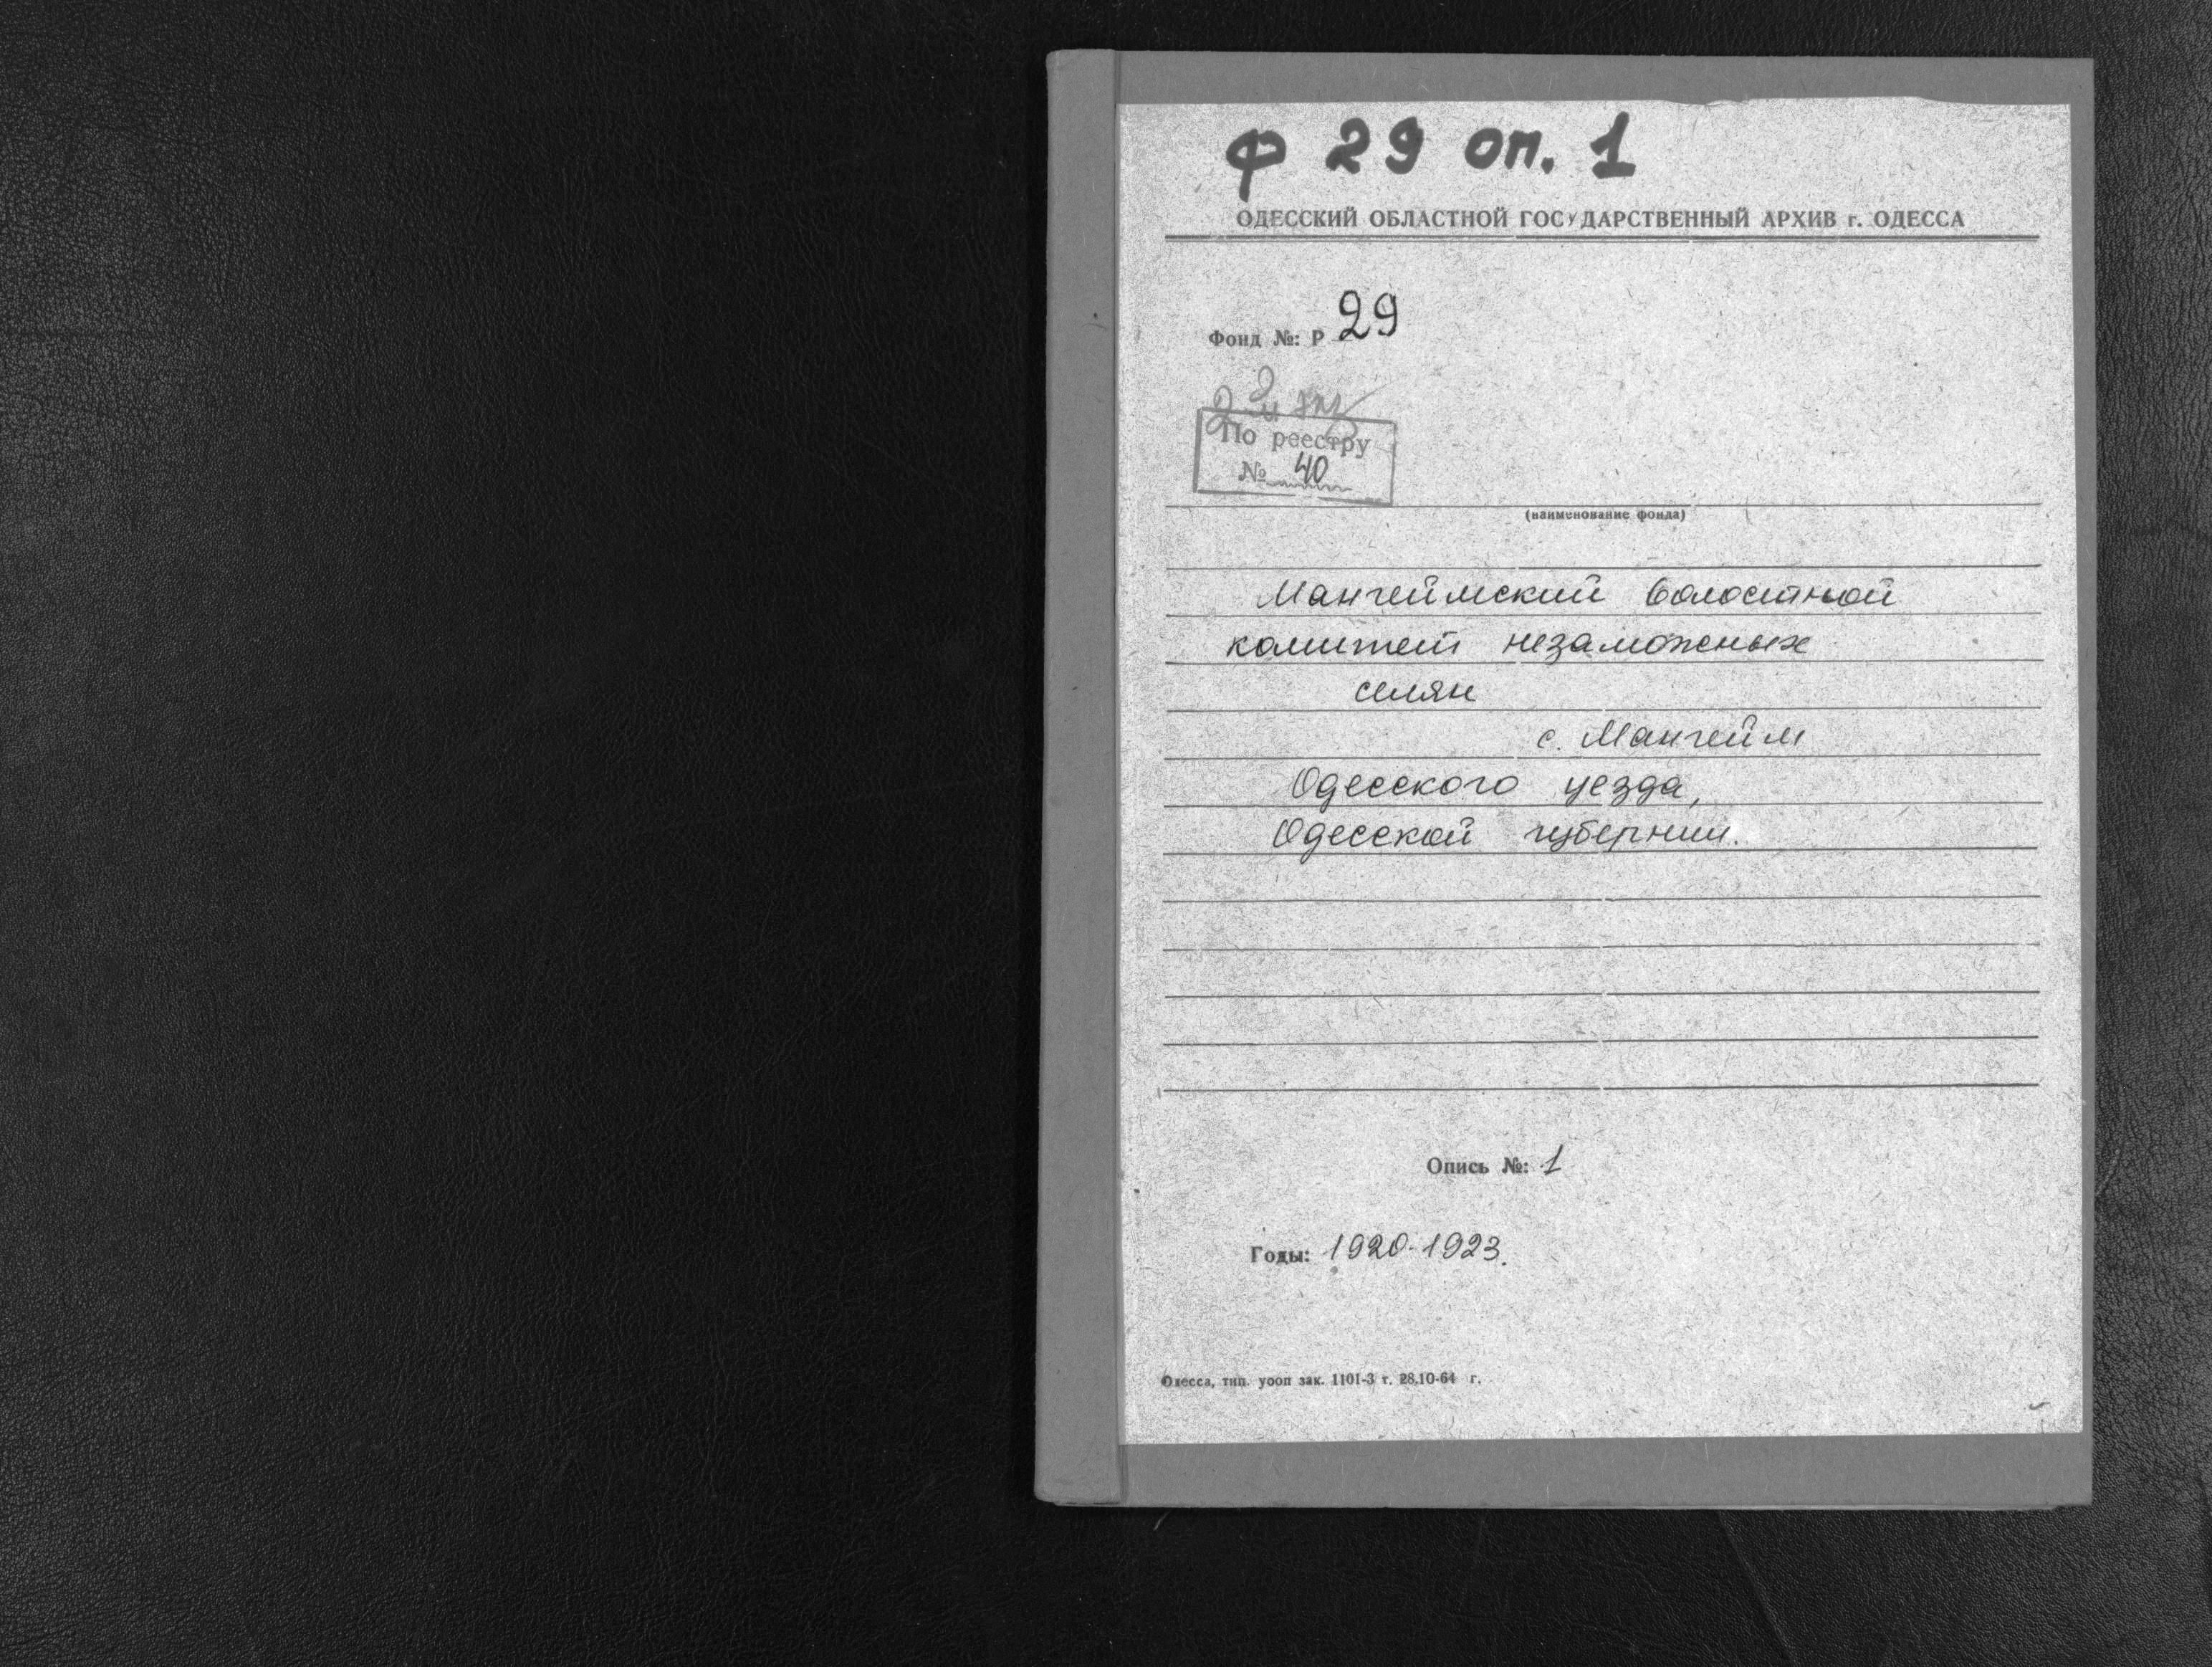 ф 29 оп. 1
ОДЕССКИЙ ОБЛАСТНОЙ ГОСУДАРСТВЕННЫЙ АРХИВ г. ОДЕССА
Фонд №: Р 29
По реестру
№ 40
(наименование фонда)
Мангеймский волостной
комитет незаможных
селян
с. Мангейм
Одесского уезда,
Одесской губернии.
Опись №: 1
Годы: 1920-1923.
Одесса, тип. уооп зак. 1101-3 т. 28.10-64 г.